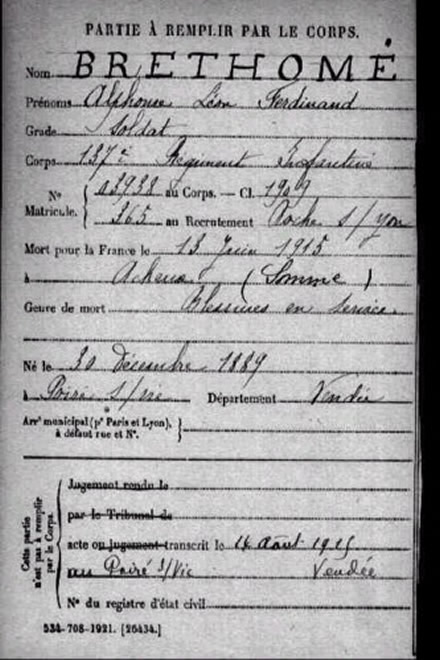 PARTIE À REMPLIR PAR LE CORPS.
Nom BRETHOMÉ
Prénoms Alphonse Léon Ferdinand
Grade Soldat
Corps 137e Régiment Infanterie
Nº Matricule. { 03938 au Corps. — Cl. 1909
365 au Recrutement Roche s/yon
Mort pour la France le 13 Juin 1915
à Acheux (Somme)
Genre de mort Blessures en service.
Né le 30 Décembre 1889
à Poiré s/vie Département Vendée
Arrt municipal (pr Paris et Lyon), à défaut rue et Nº. }
Cette partie n'est pas à remplir par le Corps.
Jugement rendu le
par le Tribunal de
acte ou jugement transcrit le 14 Août 1915
au Poiré s/Vie Vendée
Nº du registre d'état civil
534-708-1921. [26434.]